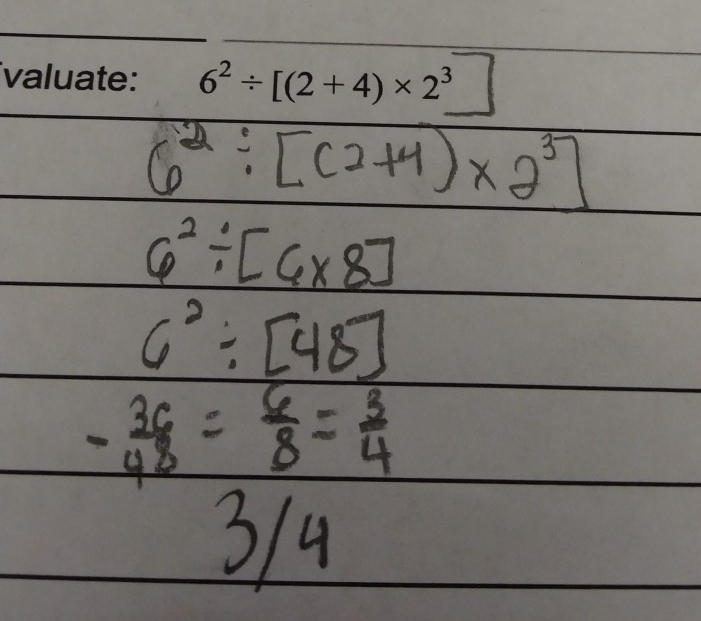 valuate: 6² ÷ [(2 + 4) × 2³]
6² ÷ [(2+4) × 2³]
6² ÷ [6×8]
6² ÷ [48]
- 36/48 = 6/8 = 3/4
3/4